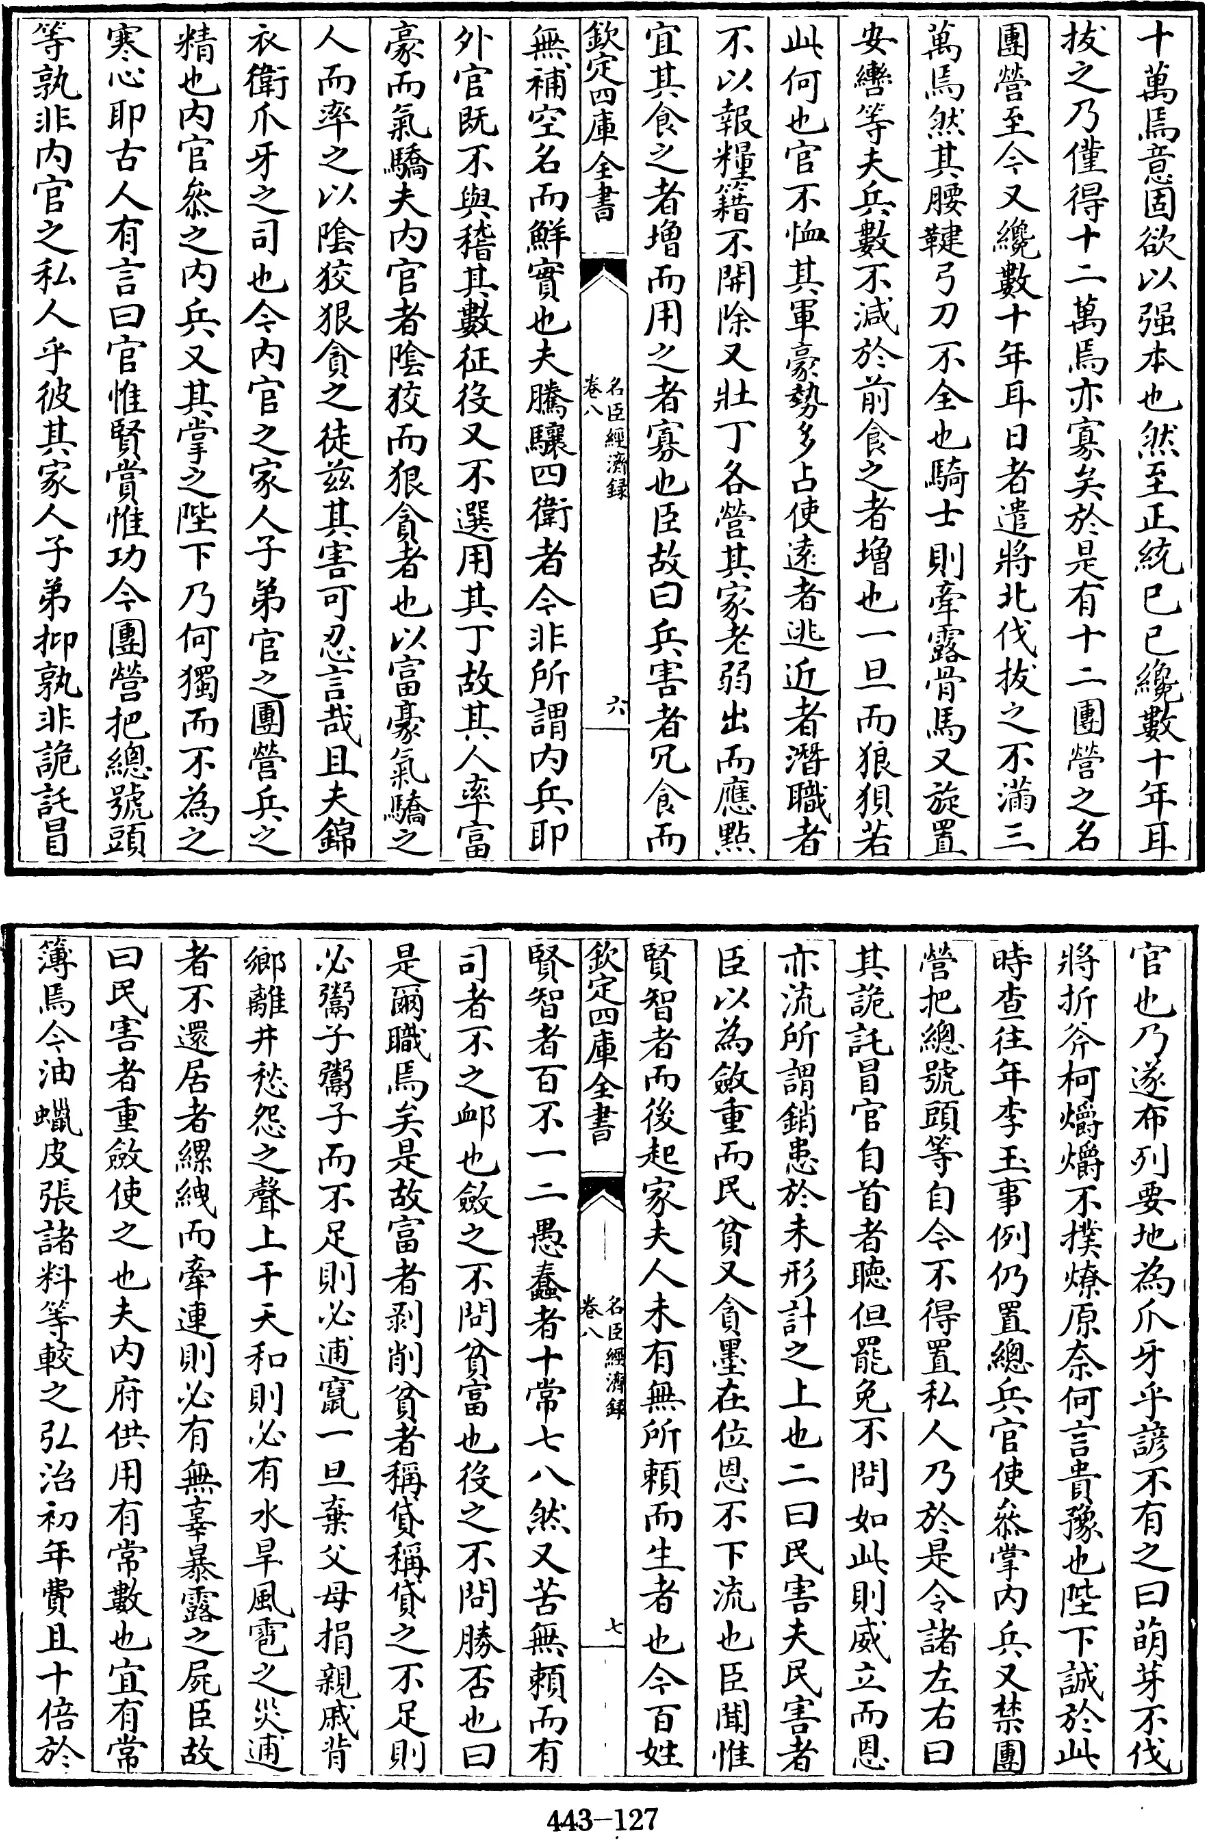 十萬焉意固欲以强本也然至正統已巳纔數十年耳
拔之乃僅得十二萬焉亦寡矣於是有十二團營之名
團營至今又纔數十年耳日者遣將北伐拔之不滿三
萬焉然其腰鞬弓刀不全也騎士則牽露骨馬又旋置
安轡等夫兵數不減於前食之者增也一旦而狼狽若
此何也官不恤其軍豪勢多占使遠者逃近者潛職者
不以報糧籍不開除又壯丁各營其家老弱出而應點
宜其食之者增而用之者寡也臣故曰兵害者冗食而
欽定四庫全書
名臣經濟録
卷八
六
無補空名而鮮實也夫騰驤四衛者今非所謂内兵耶
外官既不與稽其數征役又不選用其丁故其人率富
豪而氣驕夫内官者陰狡而狠貪者也以富豪氣驕之
人而率之以陰狡狠貪之徒兹其害可忍言哉且夫錦
衣衛爪牙之司也今内官之家人子弟官之團營兵之
精也内官叅之内兵又其掌之陛下乃何獨而不為之
寒心耶古人有言曰官惟賢賞惟功今團營把總號頭
等孰非内官之私人乎彼其家人子弟抑孰非詭託冒
官也乃遂布列要地為爪牙乎諺不有之曰萌芽不伐
將折斧柯爝爝不撲燎原奈何言貴豫也陛下誠於此
時查往年李玉事例仍置總兵官使叅掌内兵又禁團
營把總號頭等自今不得置私人乃於是令諸左右曰
其詭託冒官自首者聽但罷免不問如此則威立而恩
亦流所謂銷患於未形計之上也二曰民害夫民害者
臣以為斂重而民貧又貪墨在位恩不下流也臣聞惟
賢智者而後起家夫人未有無所頼而生者也今百姓
欽定四庫全書
名臣經濟録
卷八
七
賢智者百不一二愚蠢者十常七八然又苦無頼而有
司者不之䘏也斂之不問貧富也役之不問勝否也曰
是爾職焉矣是故富者剥削貧者稱貸稱貸之不足則
必鬻子鬻子而不足則必逋竄一旦棄父母捐親戚背
鄉離井愁怨之聲上干天和則必有水旱風雹之災逋
者不還居者縲絏而牽連則必有無辜暴露之屍臣故
曰民害者重斂使之也夫内府供用有常數也宜有常
簿焉今油蠟皮張諸料等較之弘治初年費且十倍於
443-127